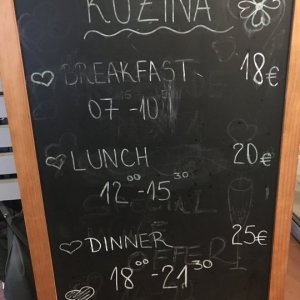 KUZINA
BREAKFAST 18€
07-10
LUNCH 20€
12⁰⁰-15³⁰
DINNER 25€
18⁰⁰-21³⁰